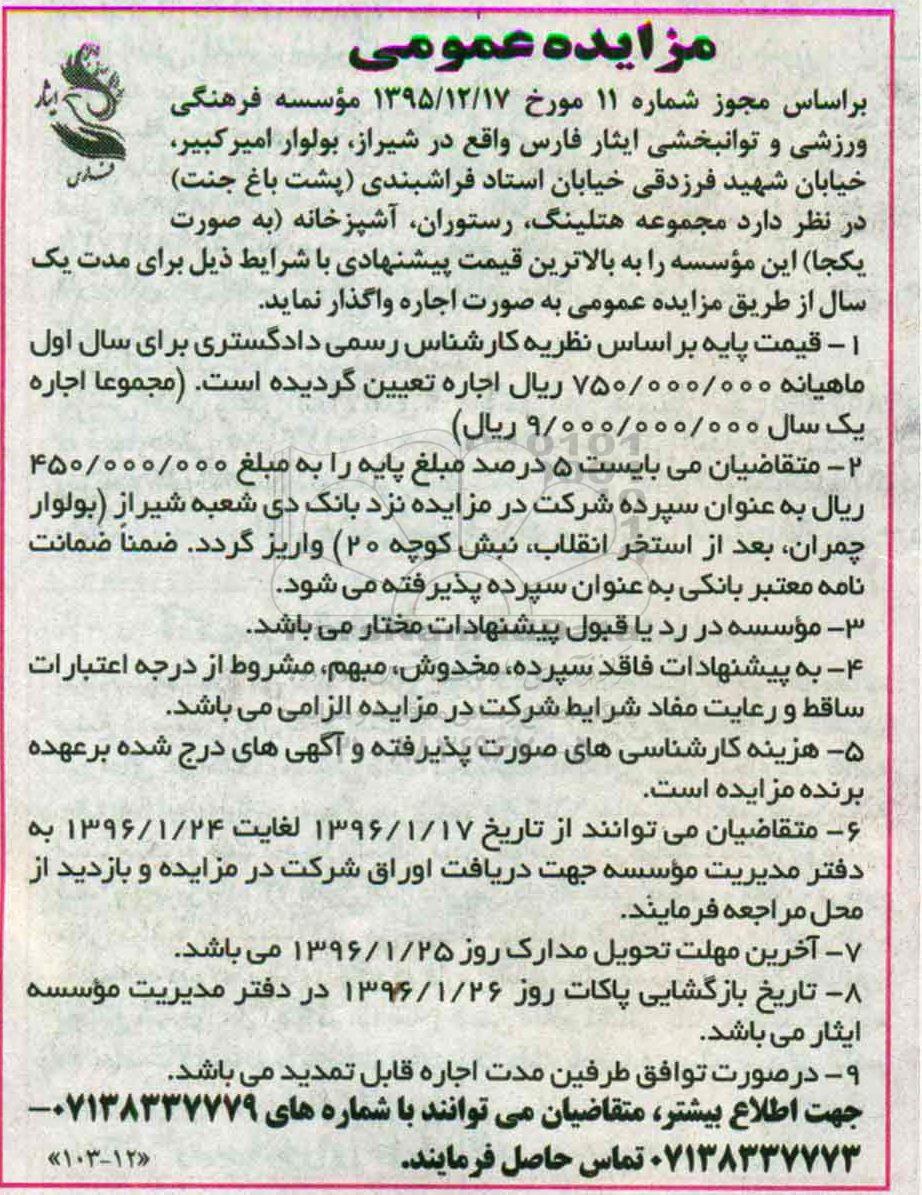 مزایده عمومی
ایثار
فارس
براساس مجوز شماره ۱۱ مورخ ۱۳۹۵/۱۲/۱۷ مؤسسه فرهنگی
ورزشی و توانبخشی ایثار فارس واقع در شیراز، بولوار امیرکبیر،
خیابان شهید فرزدقی خیابان استاد فراشبندی (پشت باغ جنت)
در نظر دارد مجموعه هتلینگ، رستوران، آشپزخانه (به صورت
یکجا) این مؤسسه را به بالاترین قیمت پیشنهادی با شرایط ذیل برای مدت یک
سال از طریق مزایده عمومی به صورت اجاره واگذار نماید.
۱- قیمت پایه براساس نظریه کارشناس رسمی دادگستری برای سال اول
ماهیانه ۷۵۰/۰۰۰/۰۰۰ ریال اجاره تعیین گردیده است. (مجموعا اجاره
یک سال ۹/۰۰۰/۰۰۰/۰۰۰ ریال)
۲- متقاضیان می بایست ۵ درصد مبلغ پایه را به مبلغ ۴۵۰/۰۰۰/۰۰۰
ریال به عنوان سپرده شرکت در مزایده نزد بانک دی شعبه شیراز (بولوار
چمران، بعد از استخر انقلاب، نبش کوچه ۲۰) واریز گردد. ضمناً ضمانت
نامه معتبر بانکی به عنوان سپرده پذیرفته می شود.
۳- مؤسسه در رد یا قبول پیشنهادات مختار می باشد.
۴- به پیشنهادات فاقد سپرده، مخدوش، مبهم، مشروط از درجه اعتبارات
ساقط و رعایت مفاد شرایط شرکت در مزایده الزامی می باشد.
۵- هزینه کارشناسی های صورت پذیرفته و آگهی های درج شده برعهده
برنده مزایده است.
۶- متقاضیان می توانند از تاریخ ۱۳۹۶/۱/۱۷ لغایت ۱۳۹۶/۱/۲۴ به
دفتر مدیریت مؤسسه جهت دریافت اوراق شرکت در مزایده و بازدید از
محل مراجعه فرمایند.
۷- آخرین مهلت تحویل مدارک روز ۱۳۹۶/۱/۲۵ می باشد.
۸- تاریخ بازگشایی پاکات روز ۱۳۹۶/۱/۲۶ در دفتر مدیریت مؤسسه
ایثار می باشد.
۹- درصورت توافق طرفین مدت اجاره قابل تمدید می باشد.
جهت اطلاع بیشتر، متقاضیان می توانند با شماره های ۰۷۱۳۸۳۳۷۷۷۹-
۰۷۱۳۸۳۳۷۷۷۳ تماس حاصل فرمایند.
«۱۰۳-۱۲»